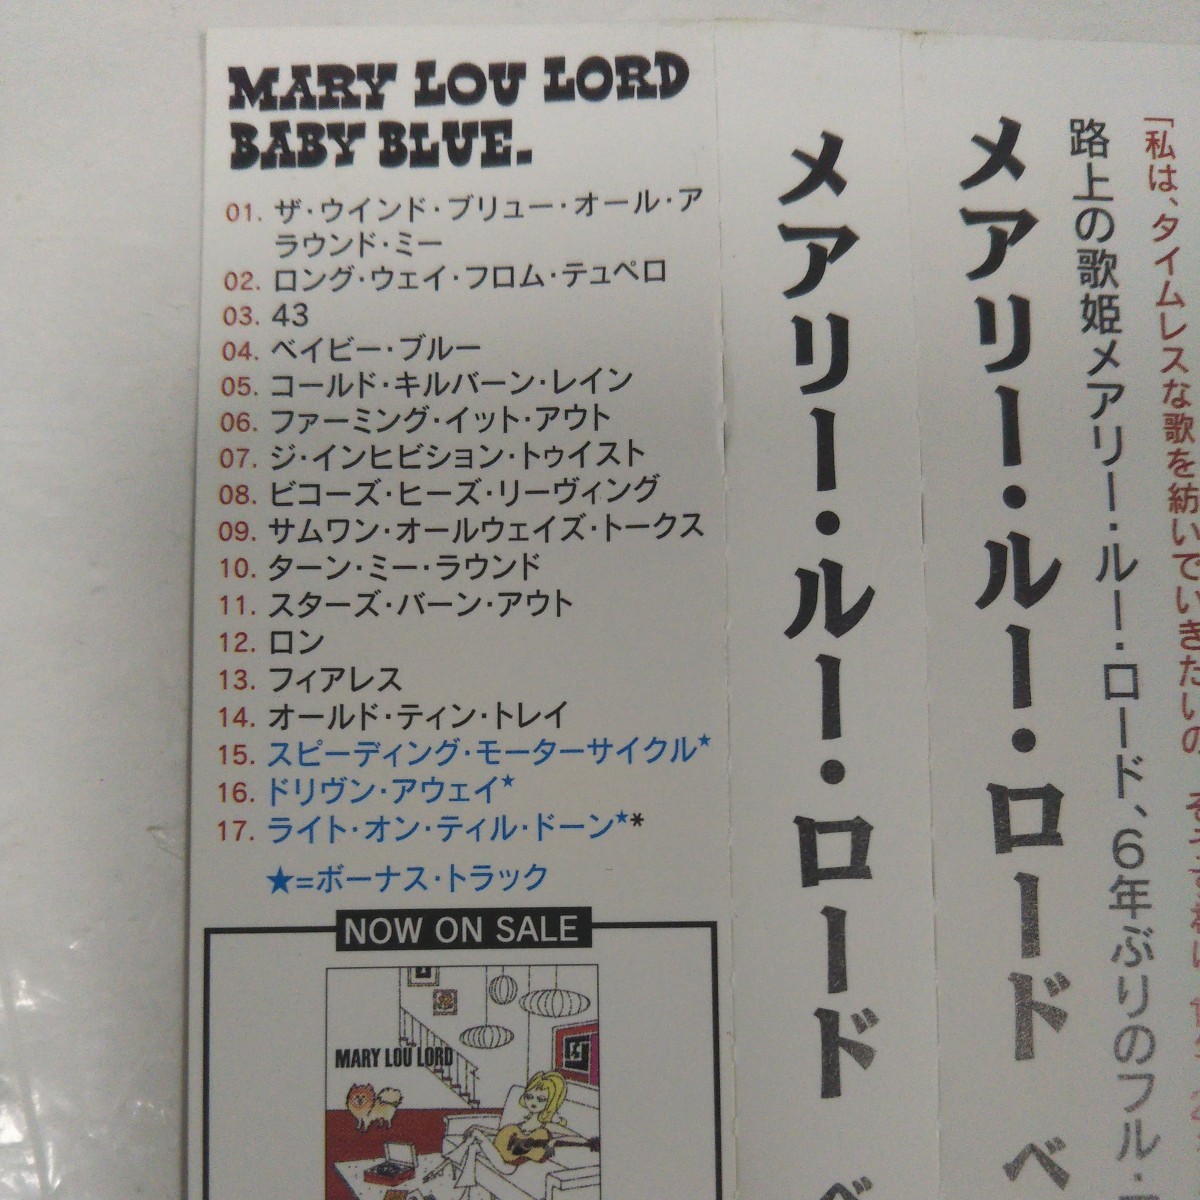 MARY LOU LORD
BABY BLUE.
01. ザ・ウインド・ブリュー・オール・ア
ラウンド・ミー
02. ロング・ウェイ・フロム・テュペロ
03. 43
04. ベイビー・ブルー
05. コールド・キルバーン・レイン
06. ファーミング・イット・アウト
07. ジ・インヒビション・トゥイスト
08. ビコーズ・ヒーズ・リーヴィング
09. サムワン・オールウェイズ・トークス
10. ターン・ミー・ラウンド
11. スターズ・バーン・アウト
12. ロン
13. フィアレス
14. オールド・ティン・トレイ
15. スピーディング・モーターサイクル★
16. ドリヴン・アウェイ★
17. ライト・オン・ティル・ドーン★*
★=ボーナス・トラック
NOW ON SALE
MARY LOU LORD
メアリー・ルー・ロード
メアリー・ルー・ロード ベ
路上の歌姫メアリー・ルー・ロード、6年ぶりのフル・
「私は、タイムレスな歌を紡いでいきたいの